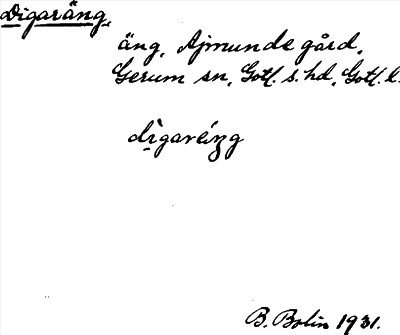 Digaräng,
äng, Ajmunde gård,
Gerum sn, Gotl. s. hd, Gotl. l.
B. Bolin 1931.